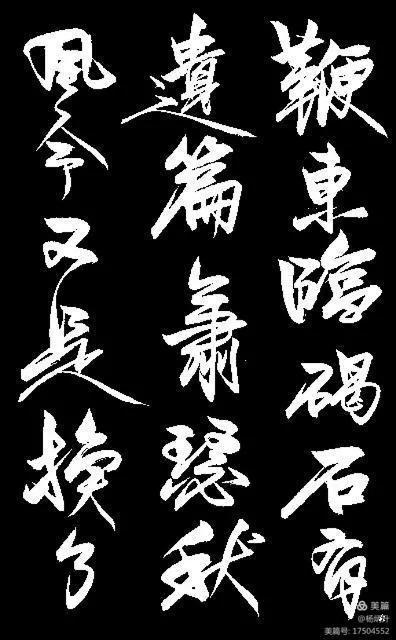 鞭東臨碣石有
遺篇蕭瑟秋
風今又是換了
美篇
@杨
美篇号: 17504552